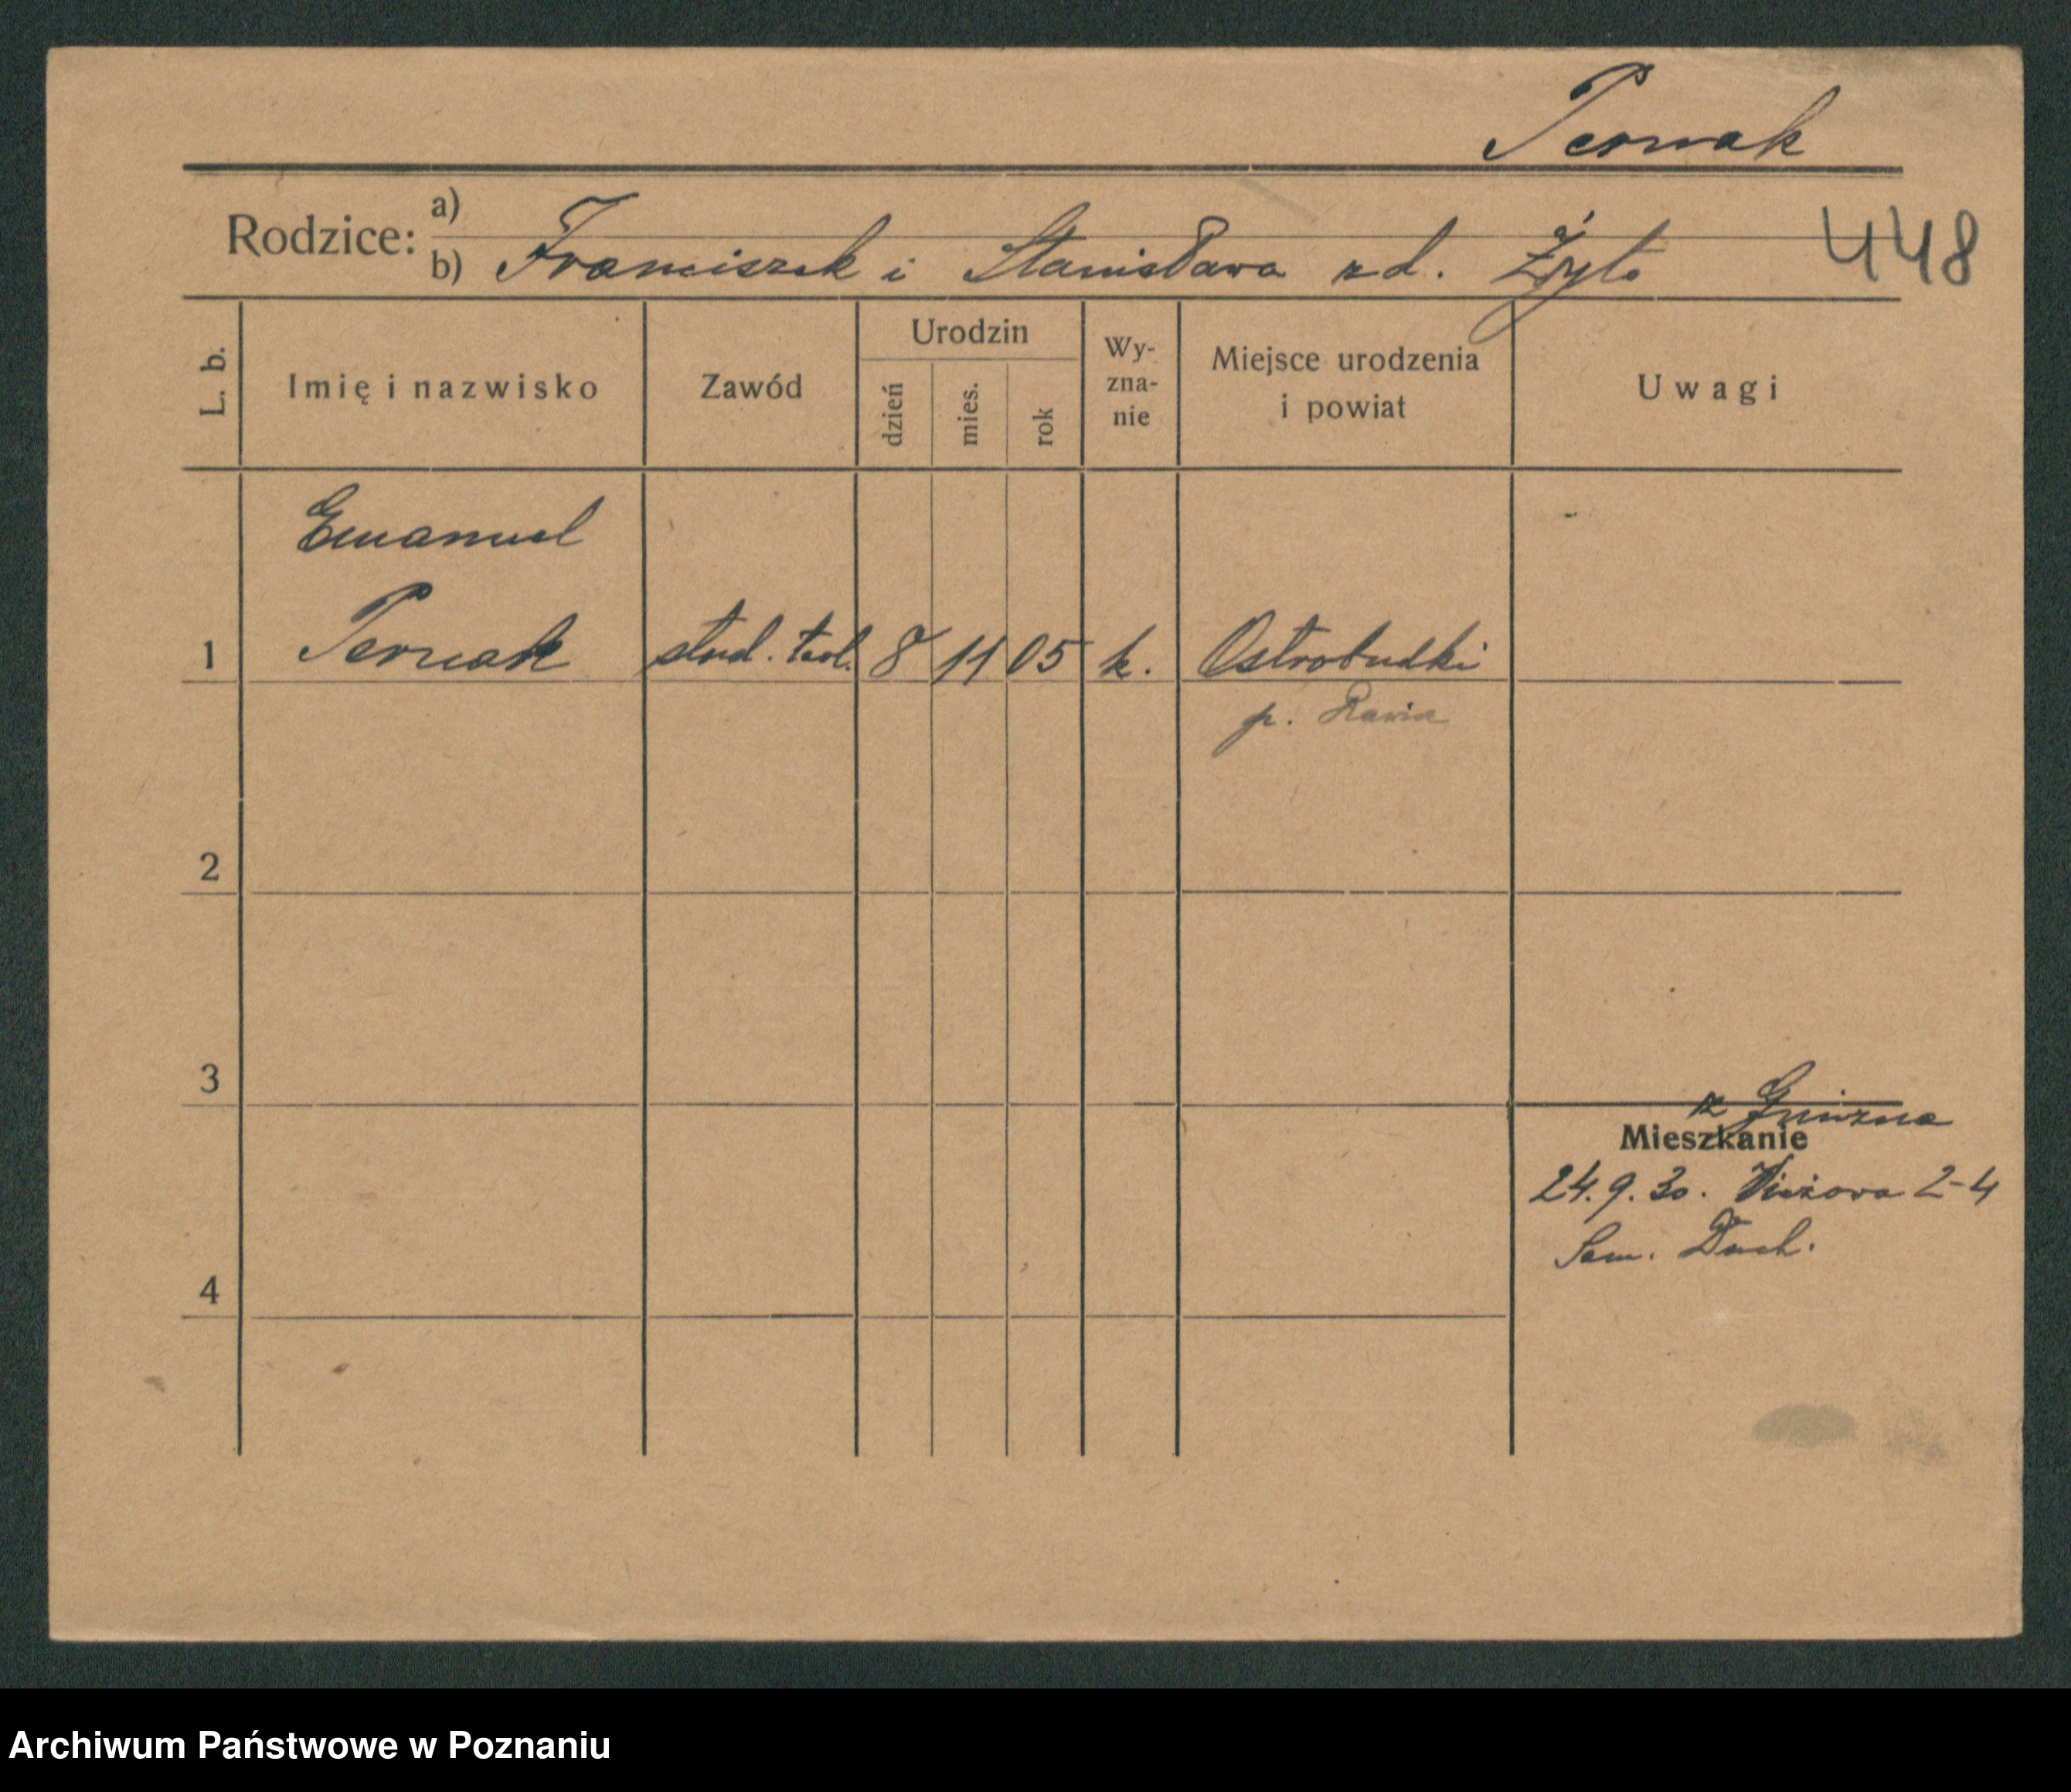 Pernak
Rodzice: a)
b) Franciszek i Stanisława zd. Żyto
448
L. b.
Imię i nazwisko
Zawód
Urodzin
dzień
mies.
rok
Wy-
zna-
nie
Miejsce urodzenia
i powiat
Uwagi
Emanuel
1 Pernak stud. teol. 8 11 05 k. Ostrobudki
p. Rawicz
2
3
z Gniezna
Mieszkanie
24.9.30. Wieżowa 2-4
Sem. Duch.
4
Archiwum Państwowe w Poznaniu